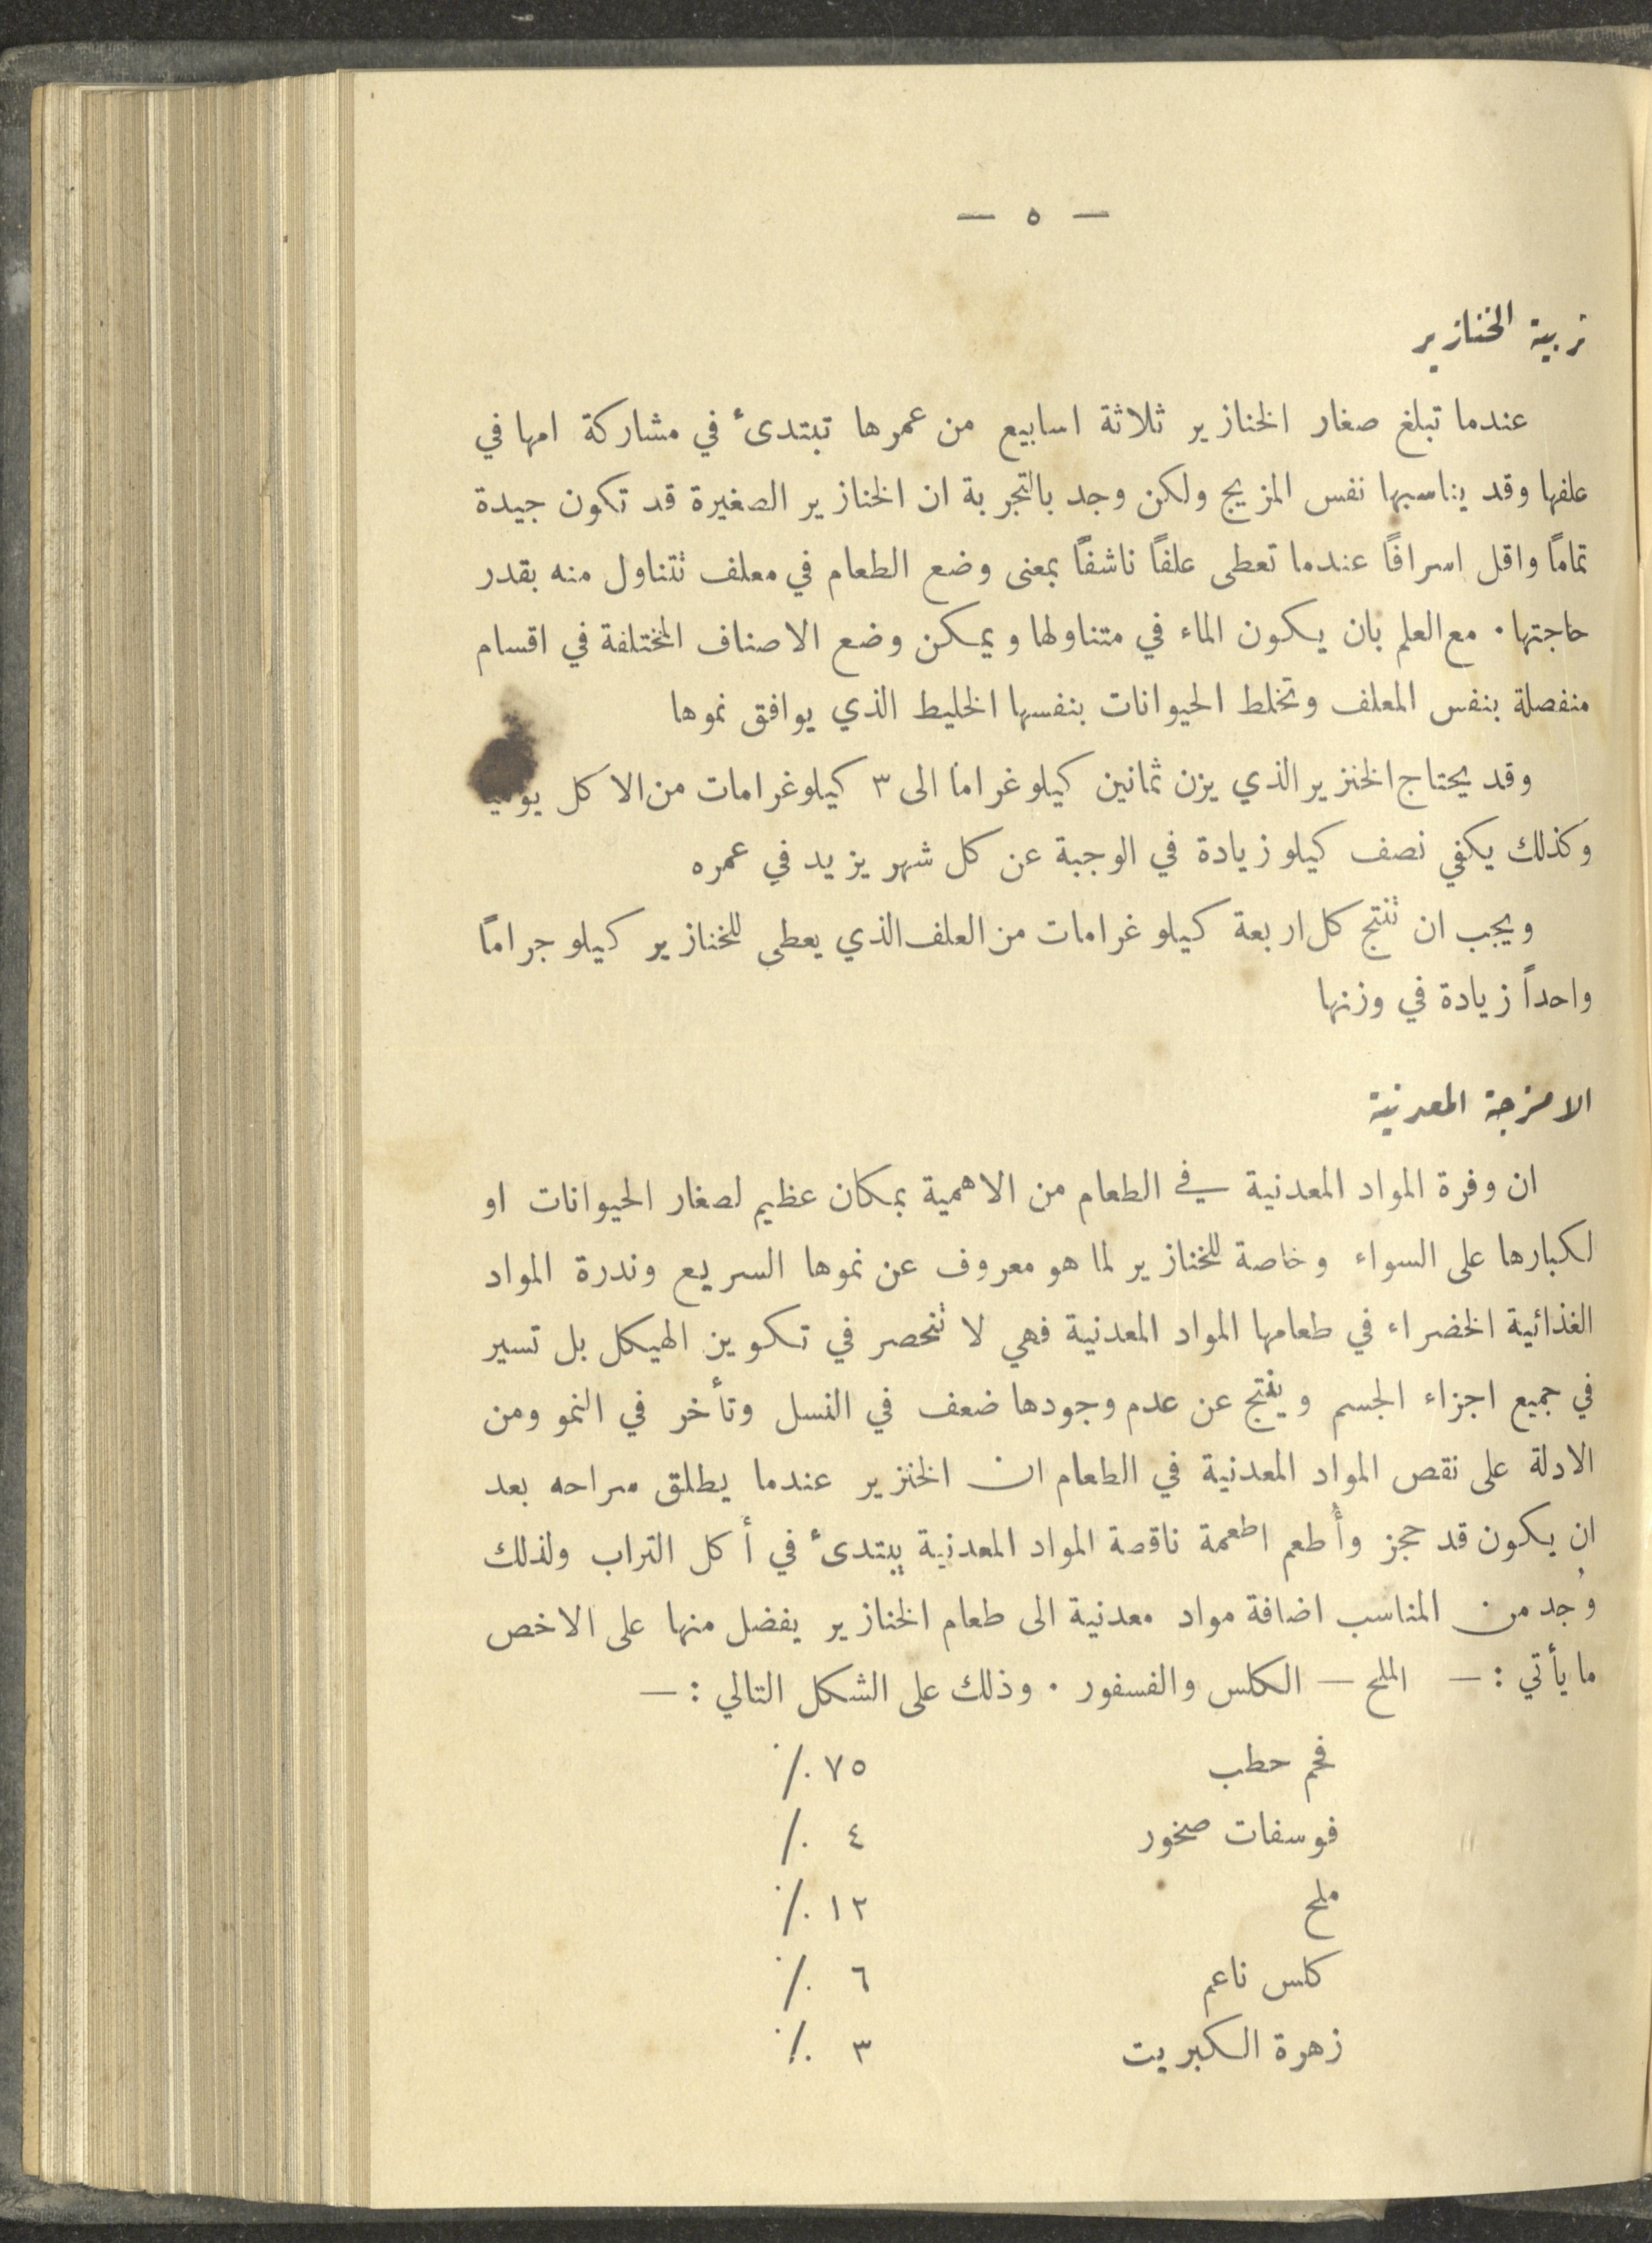 — ٥ —
تربية الخنازير
عندما تبلغ صغار الخنازير ثلاثة اسابيع من عمرها تبتدىء في مشاركة امها في
علفها وقد يناسبها نفس المزيج ولكن وجد بالتجربة ان الخنازير الصغيرة قد تكون جيدة
تماماً واقل اسرافاً عندما تعطى علفاً ناشفاً بمعنى وضع الطعام في معلف تتناول منه بقدر
حاجتها ٠ مع العلم بان يكون الماء في متناولها ويمكن وضع الاصناف المختلفة في اقسام
منفصلة بنفس المعلف وتخلط الحيوانات بنفسها الخليط الذي يوافق نموها
وقد يحتاج الخنزير الذي يزن ثمانين كيلو غراما الى ٣ كيلو غرامات من الاكل يومياً
وكذلك يكفي نصف كيلو زيادة في الوجبة عن كل شهر يزيد في عمره
ويجب ان تنتج كل اربعة كيلو غرامات من العلف الذي يعطى للخنازير كيلو جراماً
واحداً زيادة في وزنها
الامزجة المعدنية
ان وفرة المواد المعدنية في الطعام من الاهمية بمكان عظيم لصغار الحيوانات او
لكبارها على السواء وخاصة للخنازير لما هو معروف عن نموها السريع وندرة المواد
الغذائية الخضراء في طعامها المواد المعدنية فهي لا تنحصر في تكوين الهيكل بل تسير
في جميع اجزاء الجسم وينتج عن عدم وجودها ضعف في النسل وتأخر في النمو ومن
الادلة على نقص المواد المعدنية في الطعام ان الخنزير عندما يطلق سراحه بعد
ان يكون قد حجز وأُطعم اطعمة ناقصة المواد المعدنية يبتدىء في أكل التراب ولذلك
وُجد من المناسب اضافة مواد معدنية الى طعام الخنازير يفضل منها على الاخص
ما يأتي : — الملح — الكلس والفسفور ٠ وذلك على الشكل التالي : —
فحم حطب ٧٥ ٪
فوسفات صخور ٤ ٪
ملح ١٢ ٪
كلس ناعم ٦ ٪
زهرة الكبريت ٣ ٪